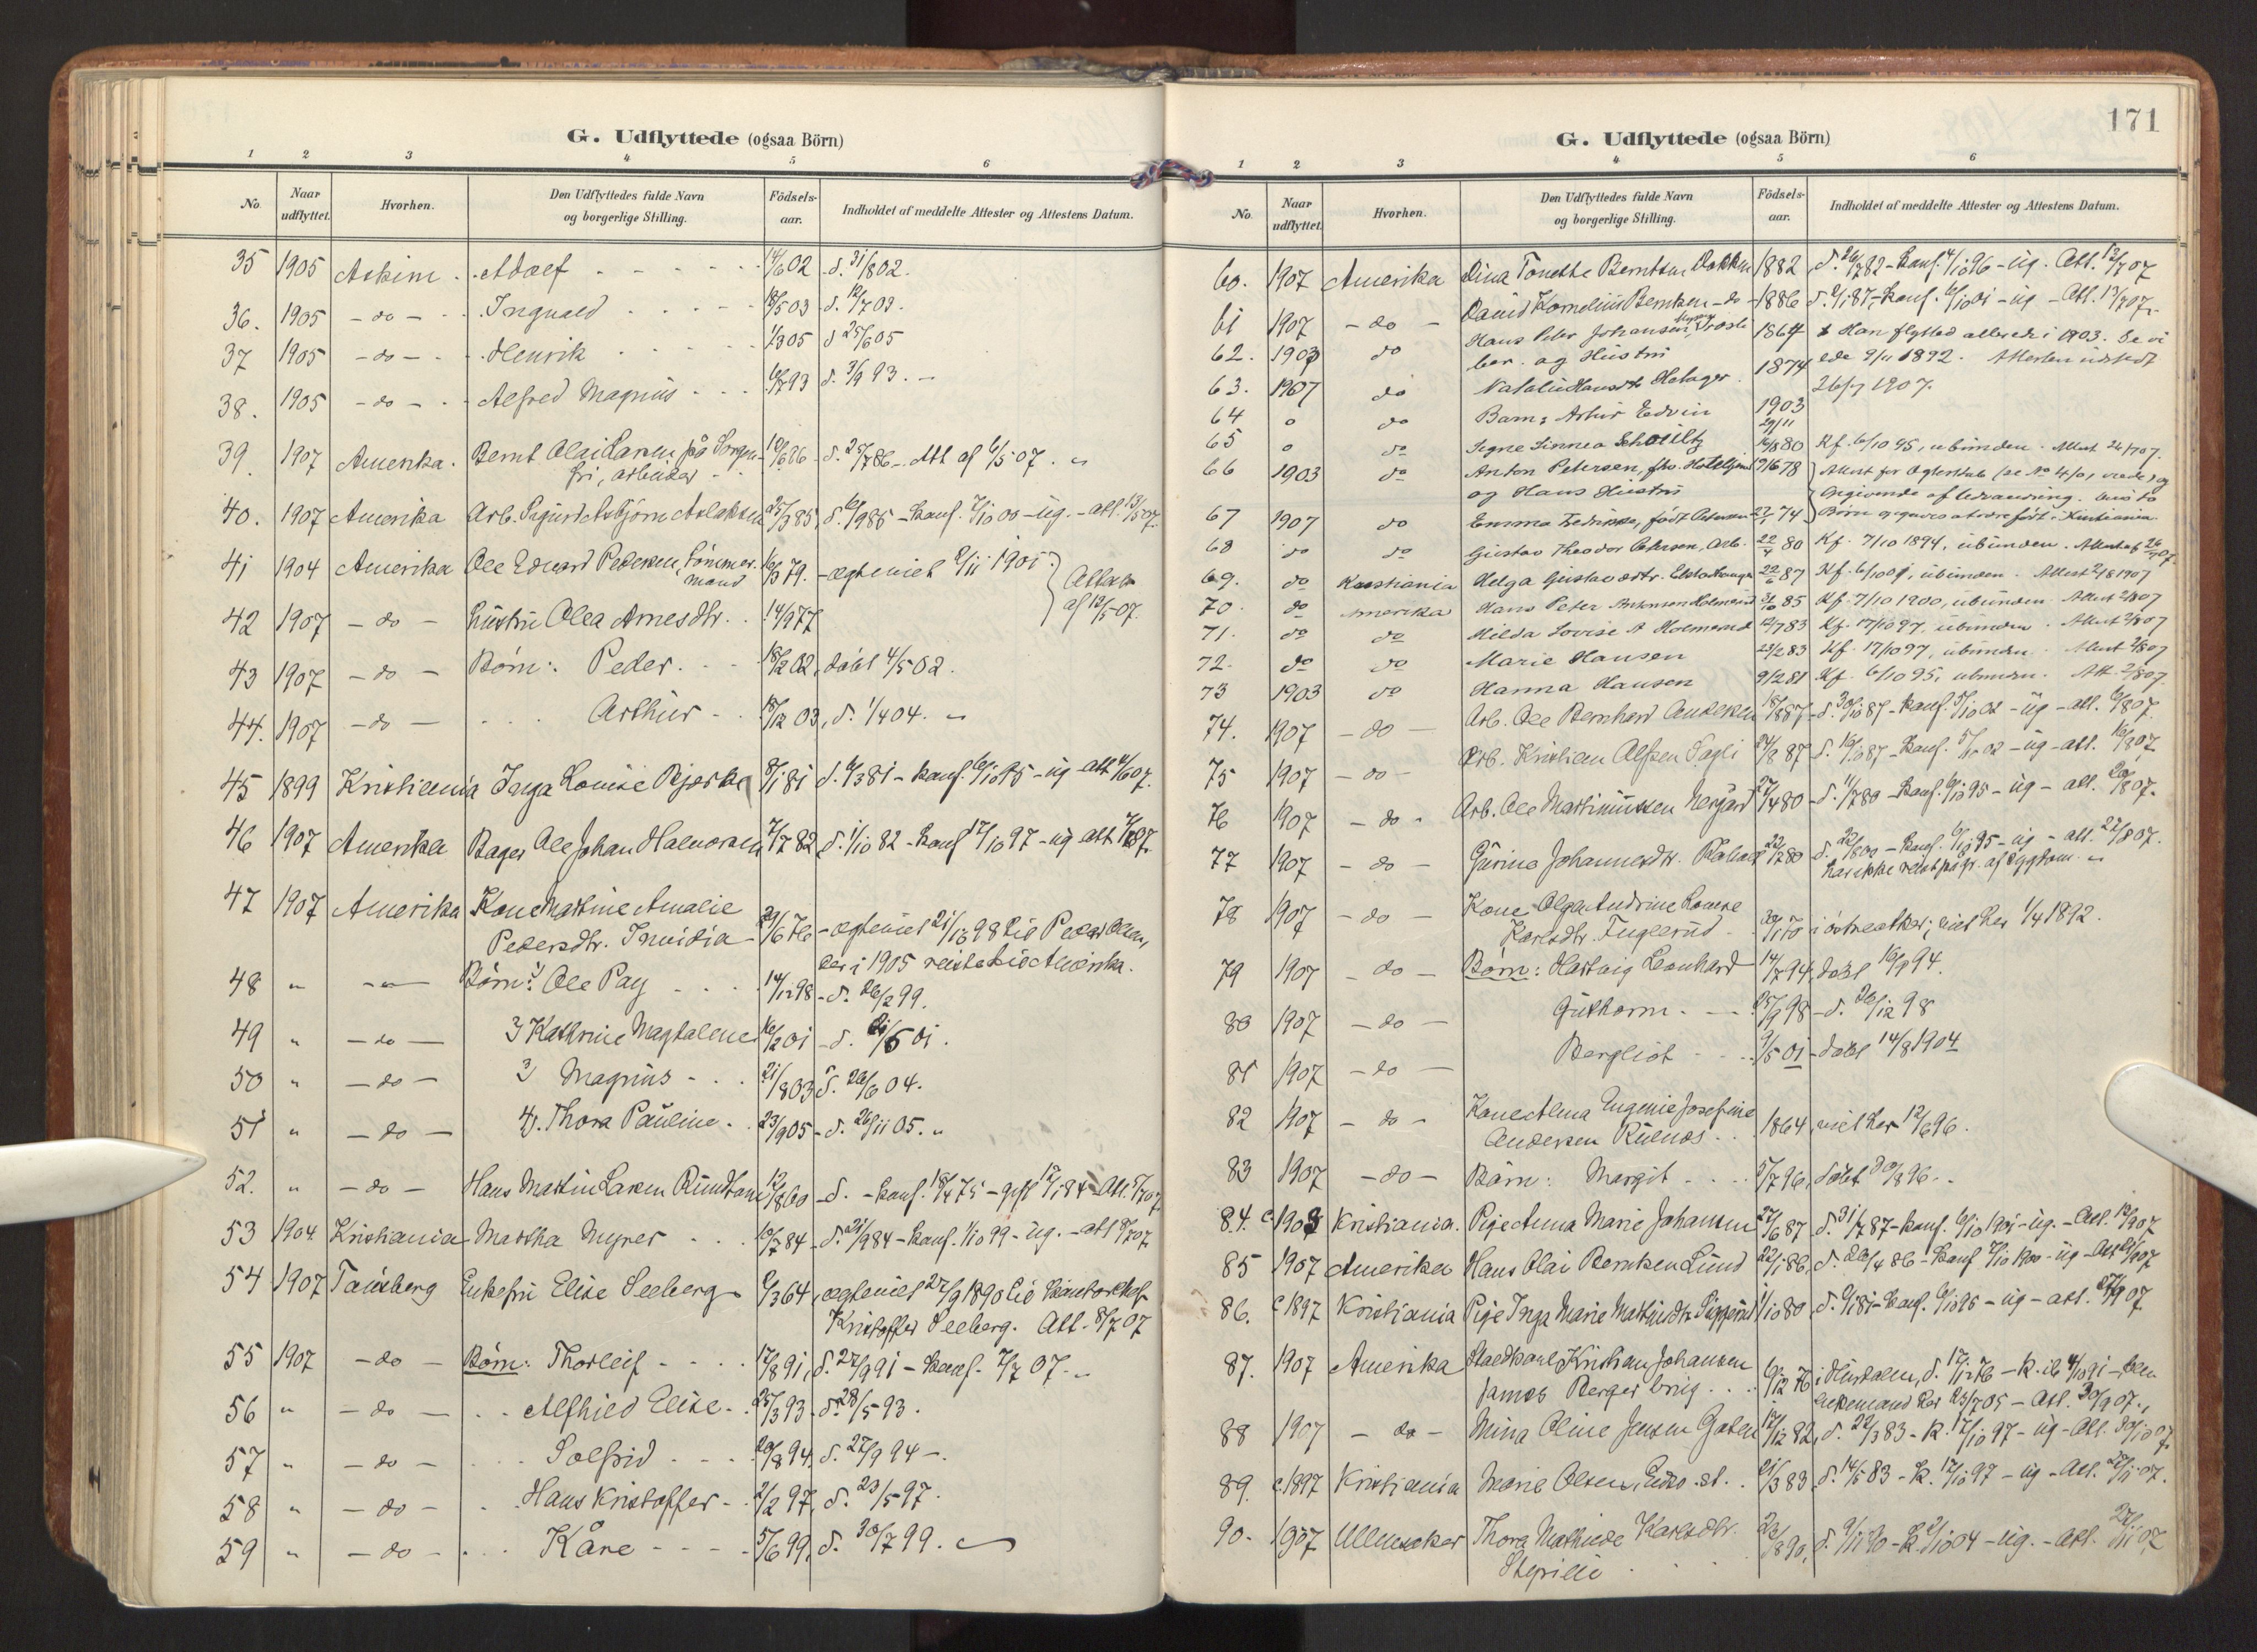 G. Udflyttede (ogsaa Börn)
1 2 3 4 5 6
No. Naar udflyttet. Hvorhen. Den Udflyttedes fulde Navn og borgerlige Stilling. Födsels-aar. Indholdet af meddelte Attester og Attestens Datum.
35 1905 Askim . . Adolf - - - - 14/6 02 d. 31/8 02.
36. 1905 - do - . . Ingvald - - - - 18/5 03 d. 12/7 03.
37 1905 - do - . . Henrik 1/3 05 d 25/6 05
38. 1905 - do - . . Alfred Magnus - - 6/7 93 d. 3/9 93. -
39. 1907 Amerika. Bernt Olai Larsen på Sorgen- 10/6 86 d. 25/7 86 - Att af 6/5 07. "
fri, arbeider
40. 1907 Amerika Arb. Sigurd Asbjörn Aslaksen 25/3 85 d. 6/9 85 - konf. 7/10 00 - ug. - att. 13/5 07.
41 1904 Amerika Ole Edvard Pedersen, Tömmer- 16/3 79. - ægteviet 2/11 1901.
mand
Attest
af 12/5 07.
42 1907 - do - hustru Olea Arnesdtr. . 14/9 77
43 1907 - do - Børn: Peder. - - 18/2 02, døbt 4/5 02.
44. 1907 - do - . . . Arthur - . 18/12 03, d. 1/4 04. "
45 1899 Kristiania Inga Lovise Bjerke 8/1 81 d. 6/3 81 - konf. 6/10 95 - ug - att 4/6 07.
46 1907 Amerika Bager Ole Johan Halvorsen 7/7 82 d. 1/10 82 - konf 17/10 97 - ug - att 7/6 07.
47 1907 Amerika Kone Martine Amalie
Pedersdtr. Invidia - 29/6 76 - ægteviet 21/10 98 til Peder Olsen,
der i 1905 reiste til Amerika.
48 " - " - Børn: 1) Ole Pay - - - 14/12 98 - d. 26/2 99.
49 " - do - 2) Kathrine Magdalene 16/2 01 - d. 21/5 01.
50 " - do - 3) Magnus - . . 21/8 03 d. 26/6 04.
51 " - do - 4). Thora Pauline . . 23/9 05 - d. 26/11 05. "
52. " - do - Hans Martin Larsen Rundtom 12/8 60 - d. - konf. 18/4 75 - gift 12/1 84 - Att. 5/7 07
53 1904 Kristiania Martha Myrer - . . 10/7 84 - d. 21/9 84 - konf. 1/10 99 - ug. - att 8/7 07
54 1907 Tønsberg Enkefru Elise Seeberg 6/3 64, ægteviet 27/9 1890 til kontorchef
Kristoffer Seeberg. Att. 8/7 07
55 1907 - do - Børn: Thorleif - - - - 17/8 91, d. 27/9 91 - konf. 7/7 07. "
56 " - do - . . Alfhild Elise - . 25/3 93 - d. 28/5 93.
57 " - do - . . . Solfrid - - - - 20/8 94. d. 27/9 94 -.
58 " - do - . . Hans Kristoffer - . 2/2 97, d. 23/5 97.
59 " - do - . . . Kåre - - - - 5/6 99, d. 30/7 99.
171
G. Udflyttede (ogsaa Börn)
1 2 3 4 5 6
No. Naar udflyttet. Hvorhen. Den Udflyttedes fulde Navn og borgerlige Stilling. Födsels-aar. Indholdet af meddelte Attester og Attestens Datum.
60. 1907 Amerika Dina Tonette Berntsen Dokken 1882 d. 26/12 82 - konf. 4/10 96 - ug. Att. 12/7 07
61 1907 - do - David Kornelius Berntsen - do - 1886 d. 2/1 87 - konf. 6/10 01 - ug - Att. 13/7 07.
62. 1903 do Hans Peter Johansen, 1864 Han flyttet allerede i 1903. De vi
ber. og Hustru ede 9/11 1892. Attesten udstedt
63. 1907 do Natalie Hansdtr Hotager 1874 26/7 1907.
64 " do Barn: Artur Edvin 1903 29/11
65 " do Signe Linnea Schoultz 16/8 80 Kf. 6/10 95, ubunden. Attest 26/7 07.
66 1903 do Anton Petersen, fhv. Hoteleier 19/6 78 Attest for Ægteskab (se No 4/0, vrede) og
og Hans Hustru Opgivende af Udvandring. Deres to
67 1907 do Emma Fredrikke, født Petersen 27/1 74 Børn opgaves at være født i Kristiania
68 do do Gustav Theodor Petersen, Arb. 22/7 80 Kf. 7/10 1894, ubunden. Attest af 26/7 07.
69. do Kristiania Helga Gustavsdtr. 22/6 87 Kf. 6/10 01, ubunden. Attest 2/8 1907
70. do Amerika Hans Peter Antonsen Holmsrud 31/10 85 Kf. 7/10 1900, ubunden. Attest 2/8 07
71. do do Hilda Lovise A Holmsrud 12/7 83 Kf. 17/10 97, ubunden. Attest 2/8 07
72. do do Marie Hansen 23/2 83 Kf. 17/10 97, ubunden. Attest 2/8 07
73 1903 do Hanna Hansen 9/2 81 Kf. 6/10 95, ubunden. Att. 2/8 07.
74. 1907 - do - Arb. Ole Bernhard Andersen 18/8 87 - d. 30/10 87 - konf. 5/10 02 - ug - att. 6/8 07.
75 1907 - do - Arb. Kristian Alfsen Sagli 24/8 87 d. 16/10 87 - konf. 5/10 02 - ug - att. 16/8 07.
76 1907 - do - Arb. Ole Martinussen Nergård 27/4 80 - d. 11/7 80 - konf. 6/10 95 - ug - att. 20/8 07.
77 1907 - do - Gurine Johannesdtr. 22/7 80 d. 22/8 80 - konf. 6/10 95 - ug - att. 22/8 07.
har ikke reist på gr. af sygdom. "
78 1907 - do - Kone Olga Andrine Lovise
Karlsdtr. Fuglerud - 30/1 70 i østre aker; viet her 1/4 1892.
79 1907 - do - Børn: Hartvig Leonhard 14/7 94, døbt 16/9 94.
80 1907 - do - Guthorm - - - 25/9 98 - d. 26/12 98
81 1907 - do - Bergliot - - - 9/5 01 - døbt 14/8 1904
82 1907 - do - Kone Alma Eugenie Josefine
Andersen Ruenes . . 1864, viet her 12/6 96.
83 1907 - do - Børn: Margit - - - 5/7 96, døbt 30/8 96. .
84. c 1903 Kristiania. Pige Anna Marie Johansen 27/6 87 d. 31/7 87 - konf. 6/10 1901 - ug. - Att. 19/9 07
85 1907 Amerika Hans Olai Berntsen Lund 22/1 86, d. 26/4 86 - konf 7/10 1900 - ug - Att 21/9 07
86. c 1897 Kristiania Pige Inga Marie Mathisdtr. Siggerud 1/10 80 d. 6/1 81 - konf. 6/10 95 - ug - att. 27/9 07
87. 1907 Amerika Staldkarl Kristian Johansen
James Berger brug . . 6/12 76 i Hurdalen, d. 17/12 76 - k. ib 4/10 91 - blev
enkemand her 23/7 05 - Att. 30/9 07. "
88 1907 - do - Mina Oline Jensen Gaten 17/12 82, d. 22/3 83 - k. 17/10 97 - ug - Att. 30/10 07.
89. c. 1897 Kristiania Marie Olsen, . 21/3 83, d. 14/5 83 - k. 17/10 97 - ug - Att. 27/11 07.
90. 1907 Ullensaker Thora Mathilde Karlsdtr. 23/8 90, d. 9/11 90 - k. 2/10 04 - ug. - Att. 27/11 07